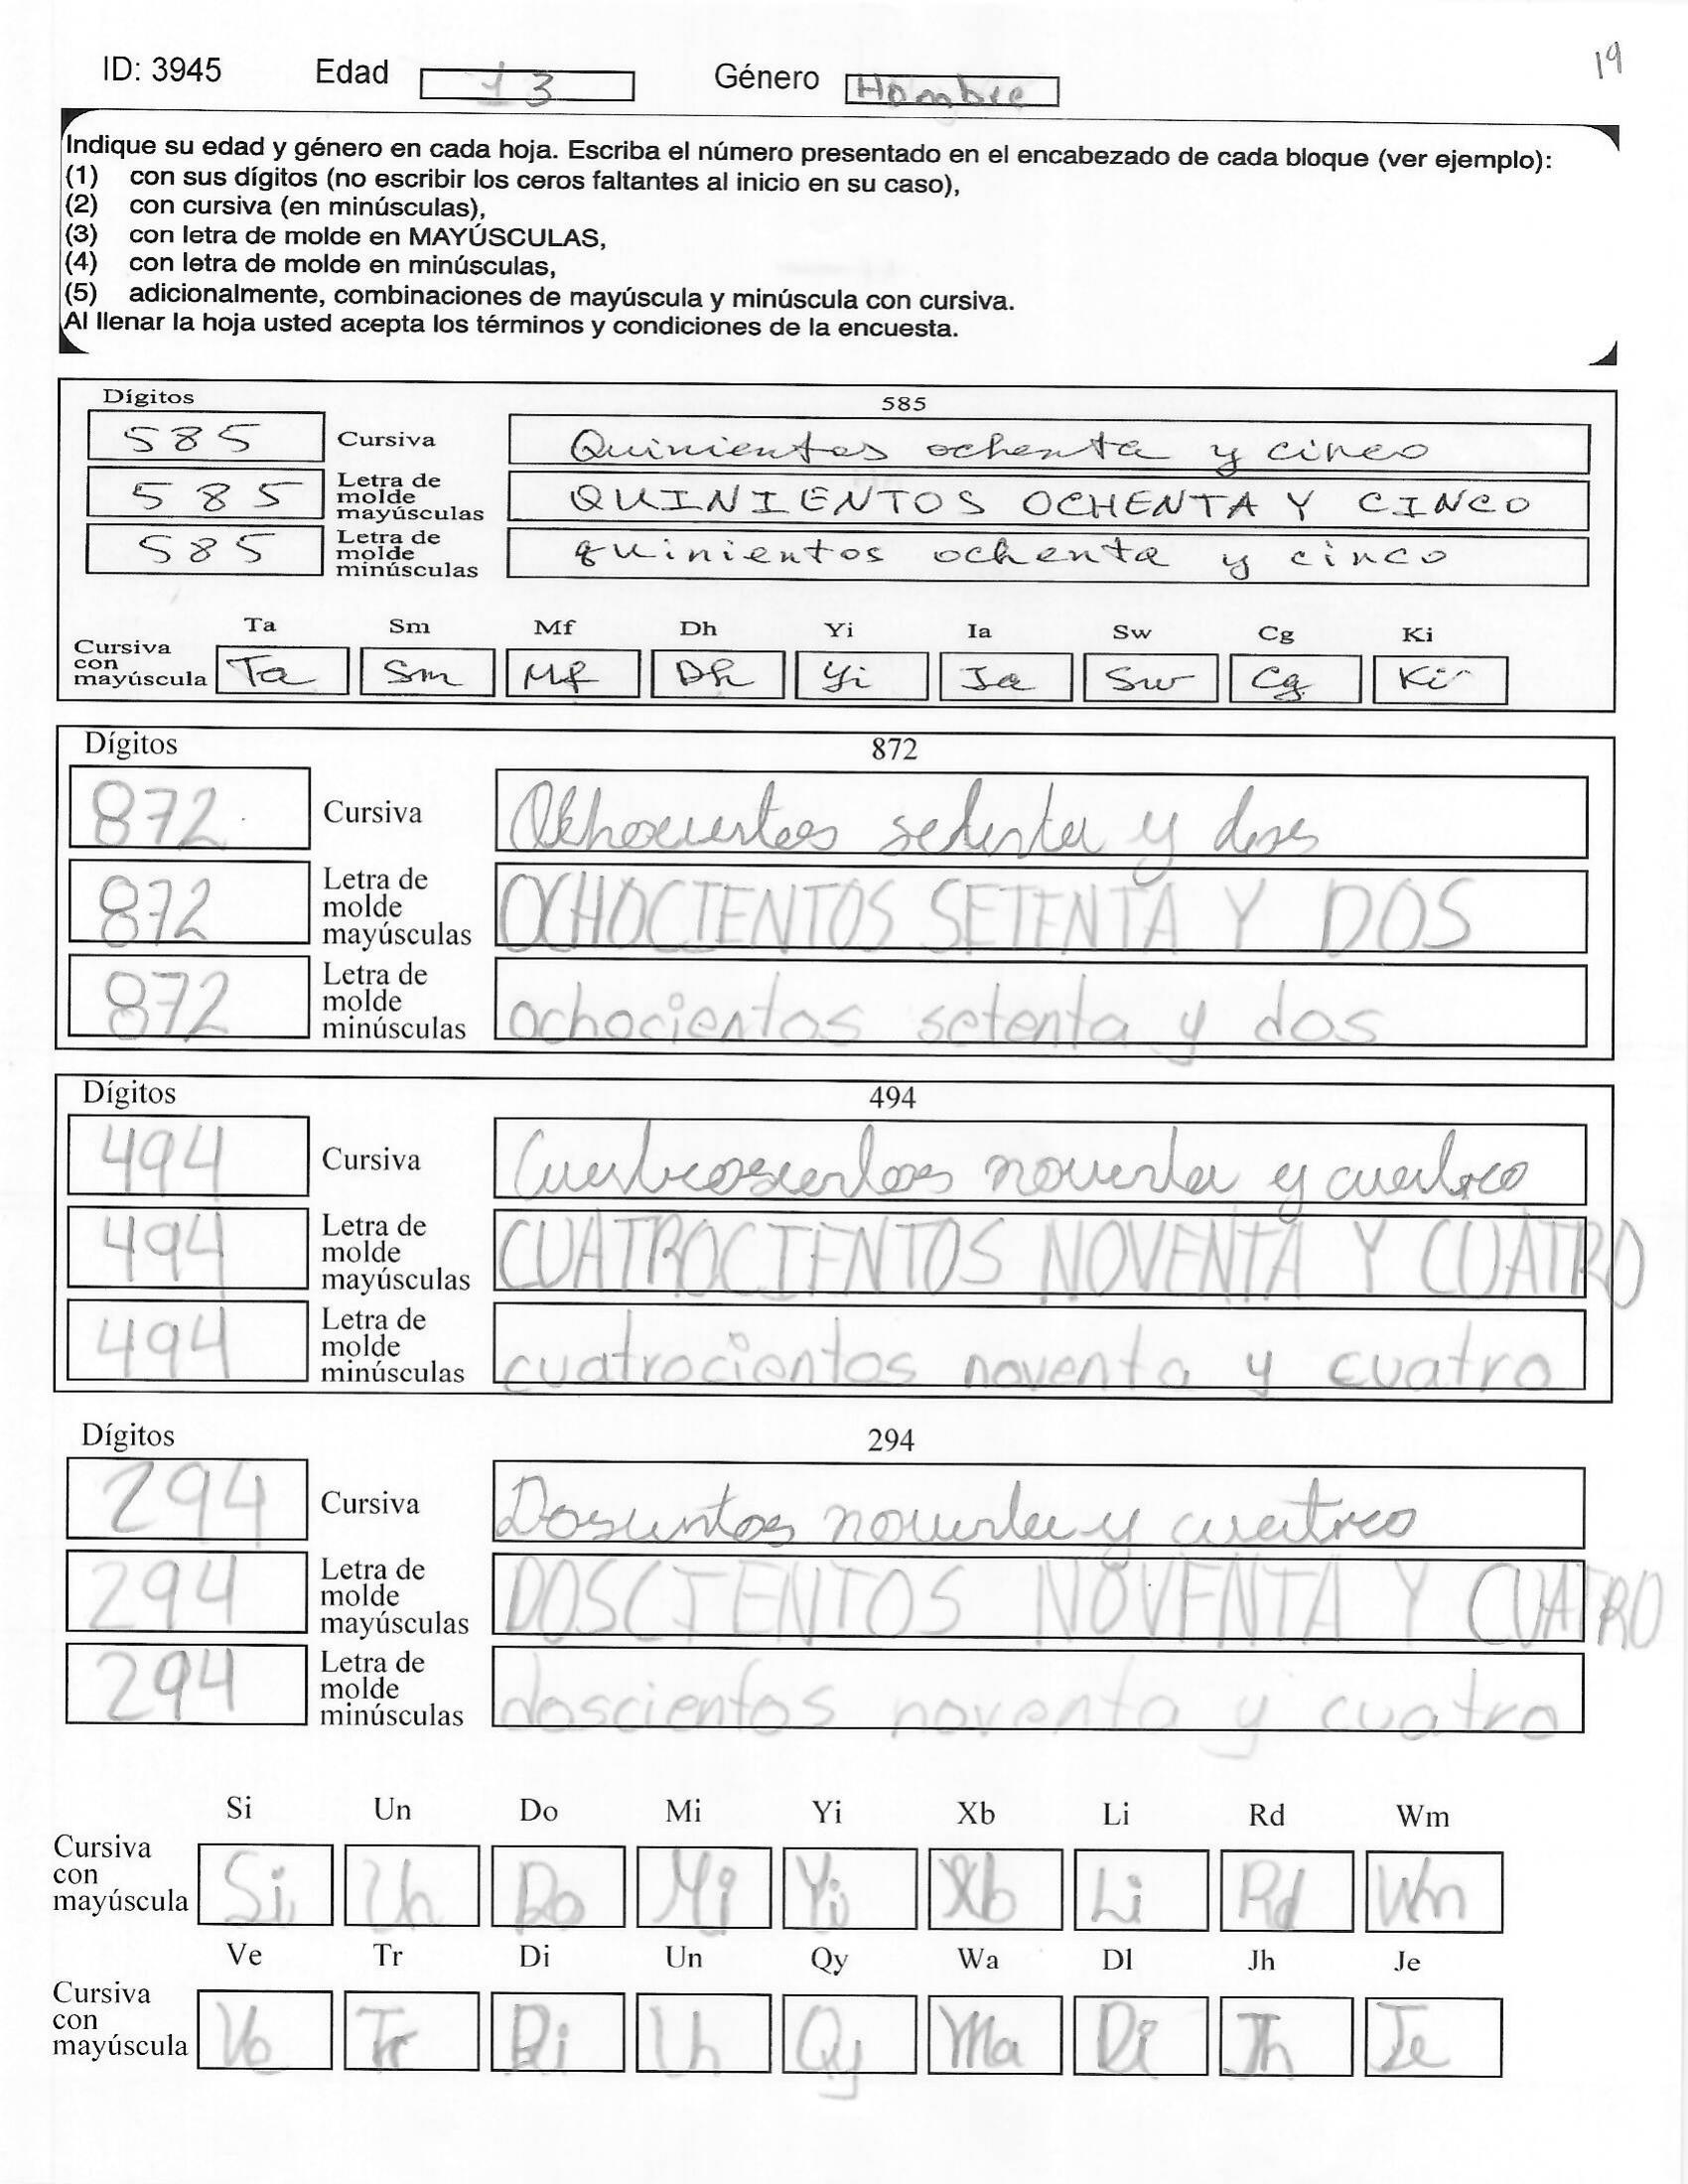 ID: 3945 Edad 13 Género Hombre 19
Indique su edad y género en cada hoja. Escriba el número presentado en el encabezado de cada bloque (ver ejemplo):
(1) con sus dígitos (no escribir los ceros faltantes al inicio en su caso),
(2) con cursiva (en minúsculas),
(3) con letra de molde en MAYÚSCULAS,
(4) con letra de molde en minúsculas,
(5) adicionalmente, combinaciones de mayúscula y minúscula con cursiva.
Al llenar la hoja usted acepta los términos y condiciones de la encuesta.
Dígitos 585
585 Cursiva Quinientos ochenta y cinco
585 Letra de molde mayúsculas QUINIENTOS OCHENTA Y CINCO
585 Letra de molde minúsculas quinientos ochenta y cinco
Ta Sm Mf Dh Yi Ia Sw Cg Ki
Cursiva con mayúscula Ta Sm Mf Dh Yi Ia Sw Cg Ki
Dígitos 872
872 Cursiva setenta y dos
872 Letra de molde mayúsculas OCHOCIENTOS SETENTA Y DOS
872 Letra de molde minúsculas ochocientos setenta y dos
Dígitos 494
494 Cursiva noventa y cuatro
494 Letra de molde mayúsculas CUATROCIENTOS NOVENTA Y CUATRO
494 Letra de molde minúsculas cuatrocientos noventa y cuatro
Dígitos 294
294 Cursiva noventa y cuatro
294 Letra de molde mayúsculas DOSCIENTOS NOVENTA Y CUATRO
294 Letra de molde minúsculas doscientos noventa y cuatro
Si Un Do Mi Yi Xb Li Rd Wm
Cursiva con mayúscula Si Un Do Mi Yi Xb Li Rd Wm
Ve Tr Di Un Qy Wa Dl Jh Je
Cursiva con mayúscula Ve Tr Di Un Qy Wa Di Jh Je